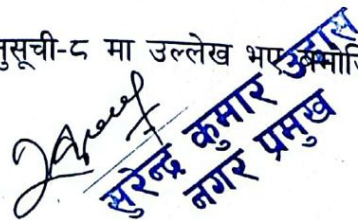 नुसूची-८ मा उल्लेख भए बमोजि
सुरेन्द्र कुमार उदास
नगर प्रमुख